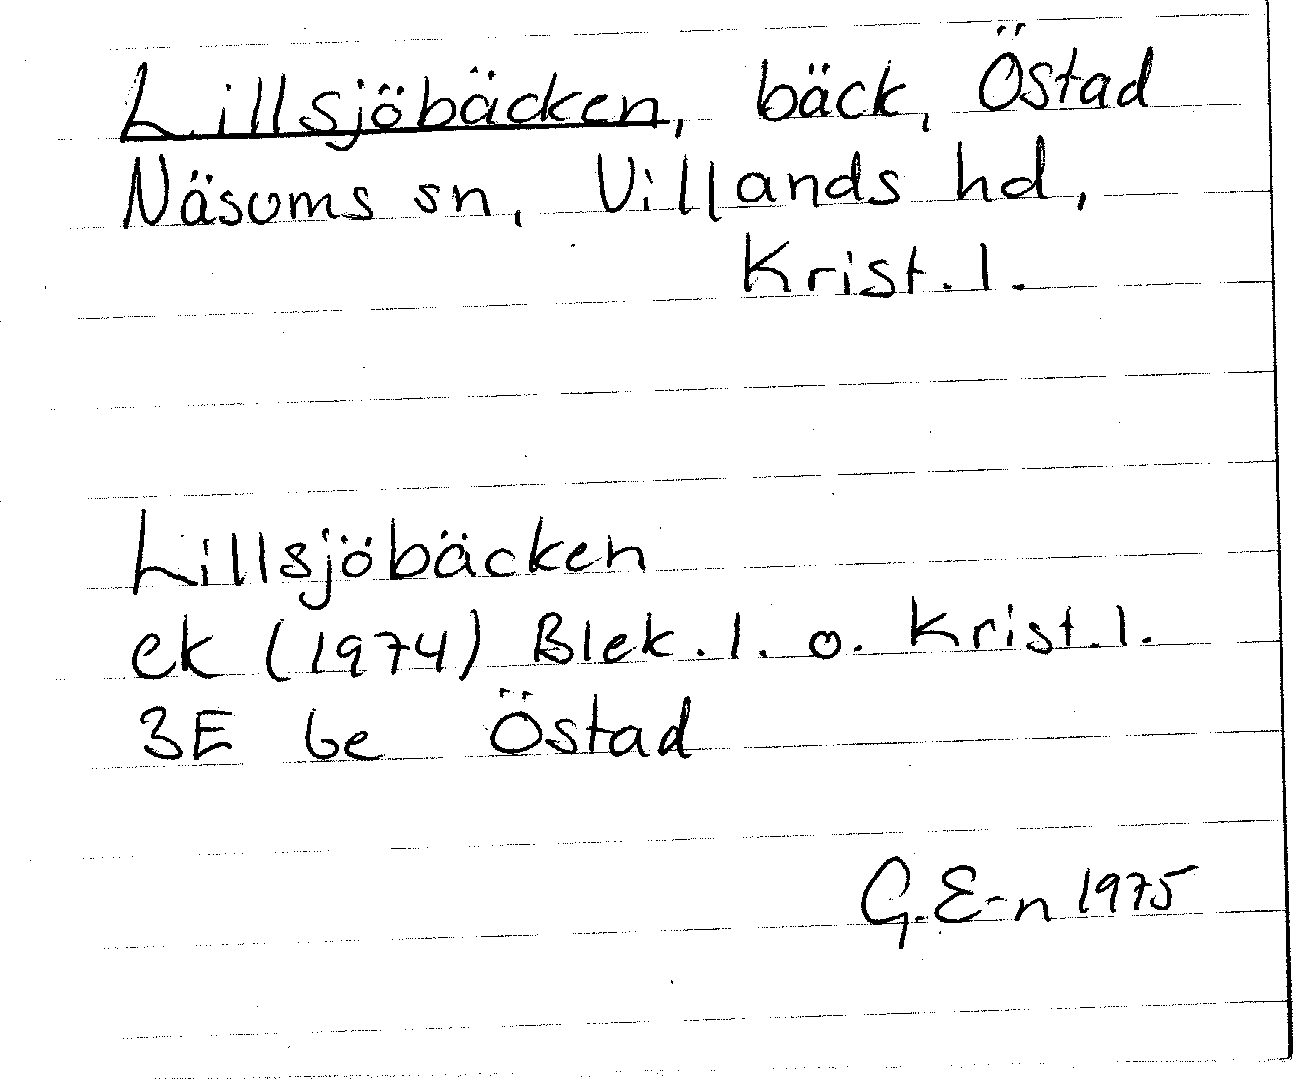 Lillsjöbäcken, bäck, Östad
Näsums sn, Villands hd,
Krist. l.
Lillsjöbäcken
ek (1974) Blek. l. o. Krist. l.
3E 6e Östad
G. E-n 1975